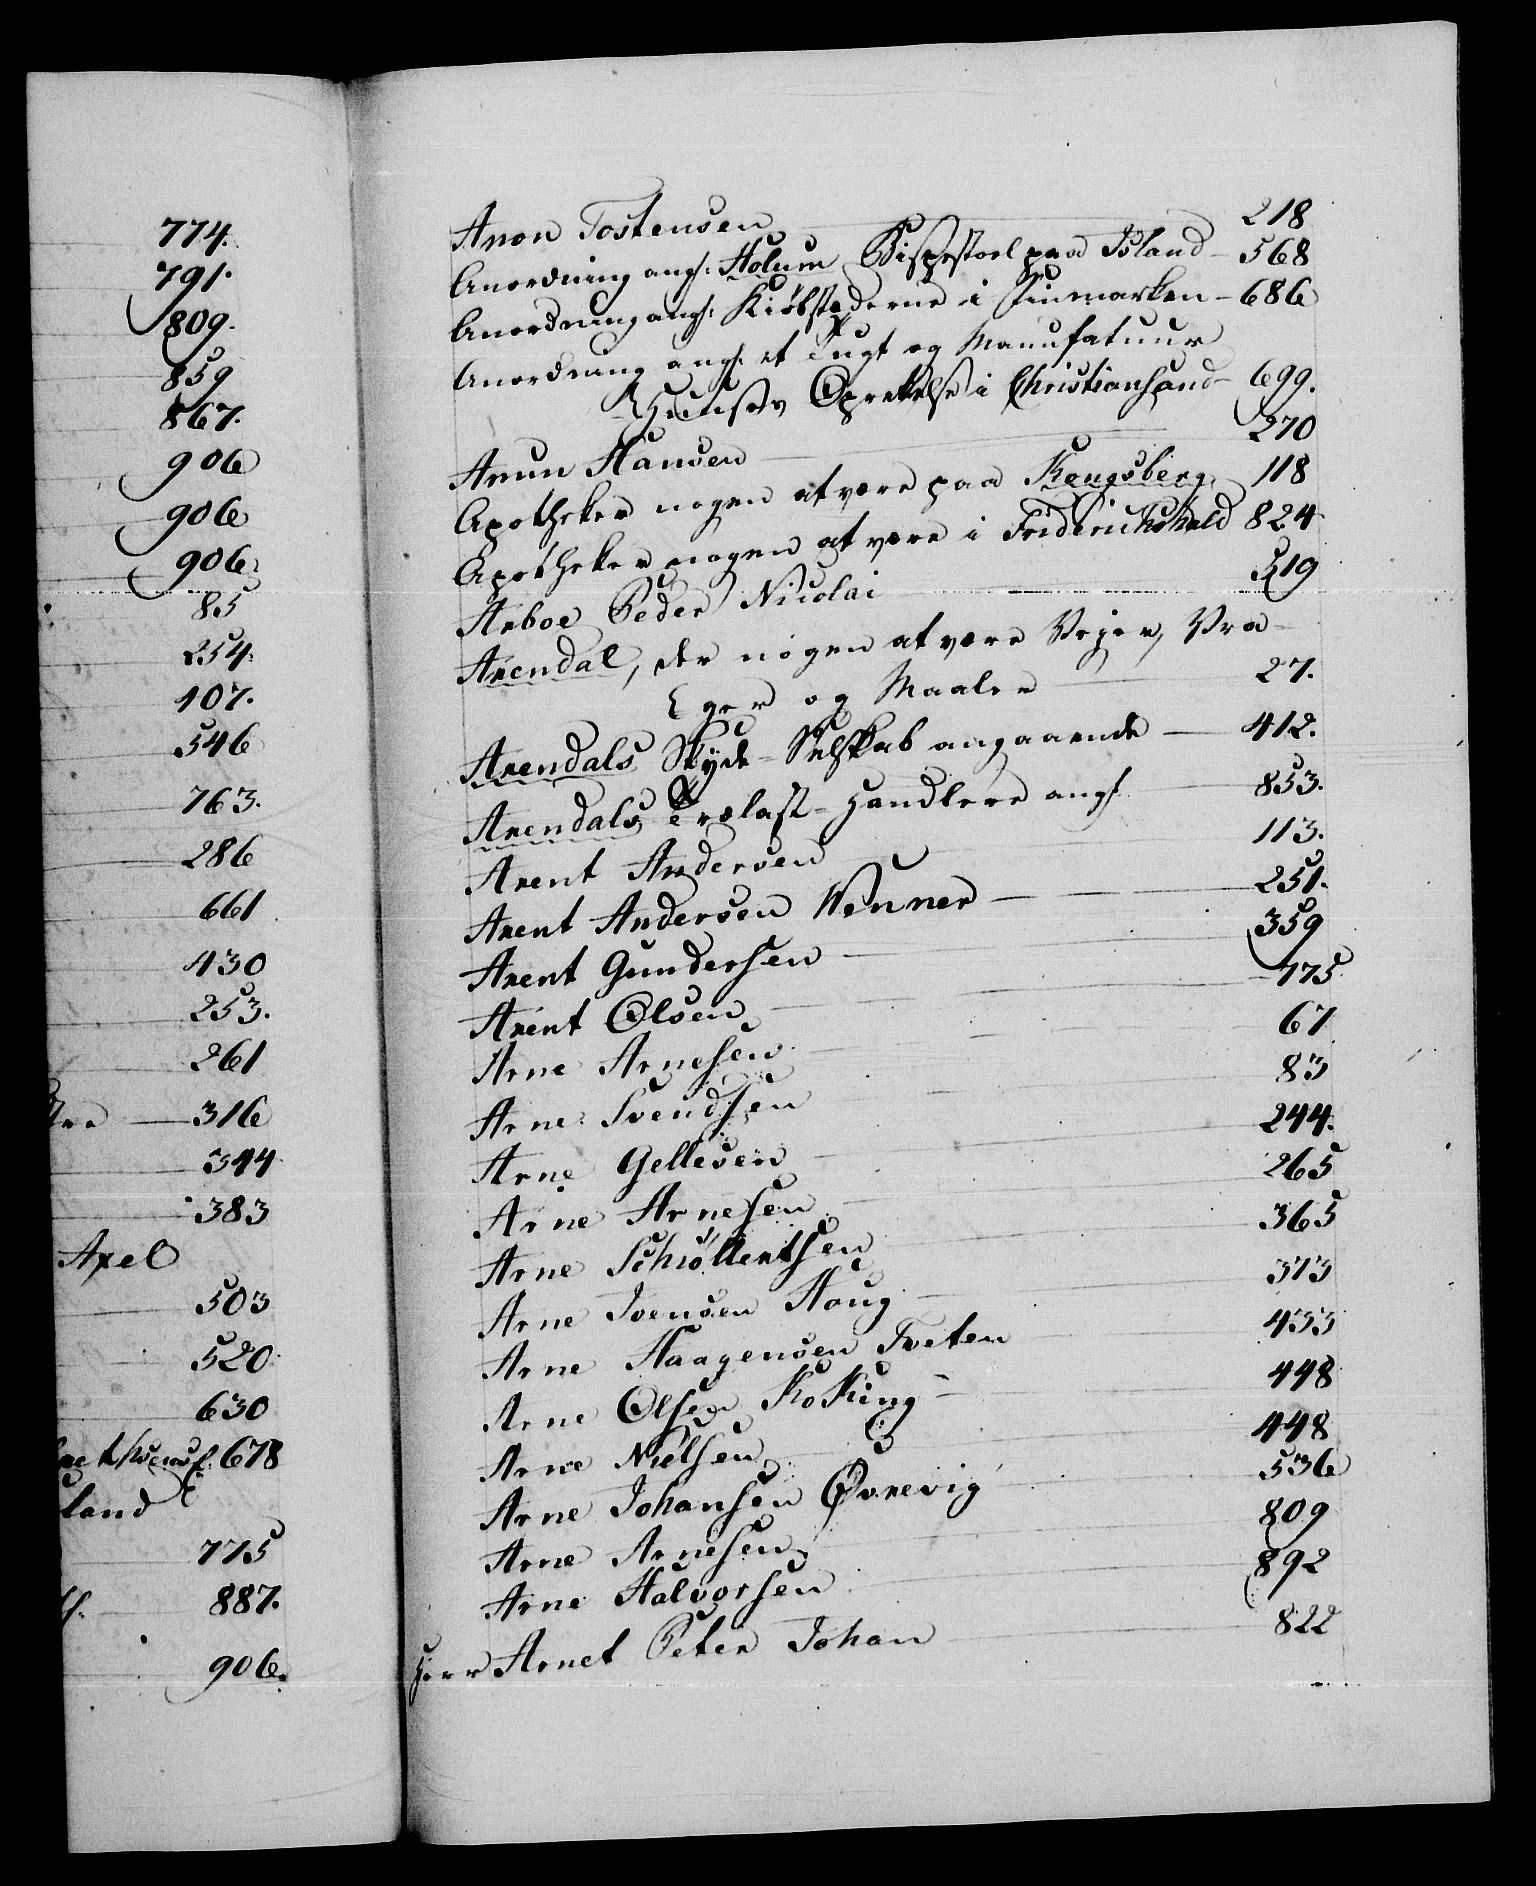 774.
791.
809.
859
867.
906
906
906.
85
254.
407.
546
763.
286
661
430
253.
261
316
344
383
Axel
503
520
630
678
land
775
887.
906.
Anon Tostensen 218
Anordning angl: Holum Bispestoel paa Island - 568
Anordning angl: Kiøbstæderne i Finmarken - 686
Anordning angl. et Tugt og Manufatuur
Huuses Oprettelse i Christiansand - 699.
Anun Hansen 270
Apotheker nogen at være paa Kongsberg 118
Apotheker nogen at være i Friderichshald 824
Arboe Peder Nicolai 519
Arendal, der nogen at være Vejer, Vra-
ger og Maaler 27.
Arendals Skyde-Selskab angaaende - 412.
Arendals Trælast-Handlere angl. 853.
Arent Andersen 113.
Arent Andersen Wenner - 251.
Arent Gundersen - 359
Arent Olsen - 775
Arne Arnesen 67
Arne Svendsen 83
Arne Gellesen 244.
Arne Arnesen 265
Arne Schiøllertsen 365
Arne Ivensen Haug 373
Arne Haagensen Tveten 433
Arne Olsen Kokung - 448
Arne Nielsen 448
Arne Johansen Øvrevig 536
Arne Arnesen 809
Arne Halvorsen 892
Herr Arnet Peter Johan 822